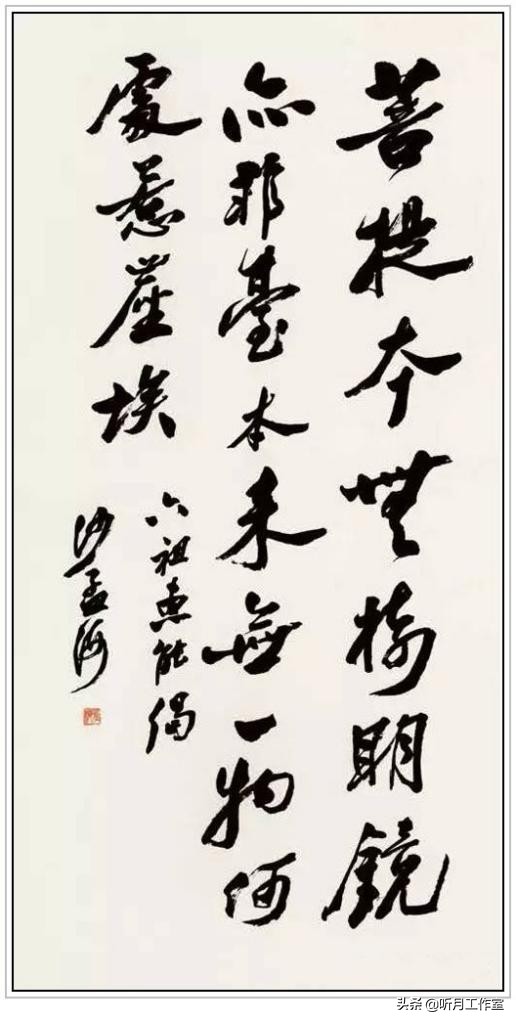 菩提本無樹明鏡
亦非臺本来無一物何
處惹塵埃
六祖惠能偈
沙孟海
头条@听月工作室